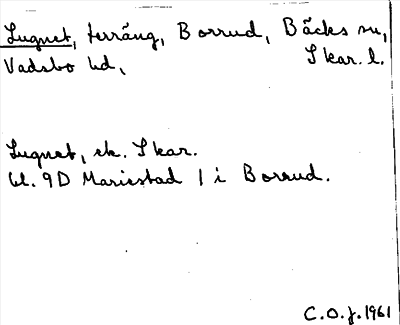 Lugnet, terräng, Borrud, Bäcks sn,
Vadsbo hd, Skar. l.
Lugnet, ek. Skar.
bl. 9D Mariestad 1 i Borrud.
C.O.J. 1961